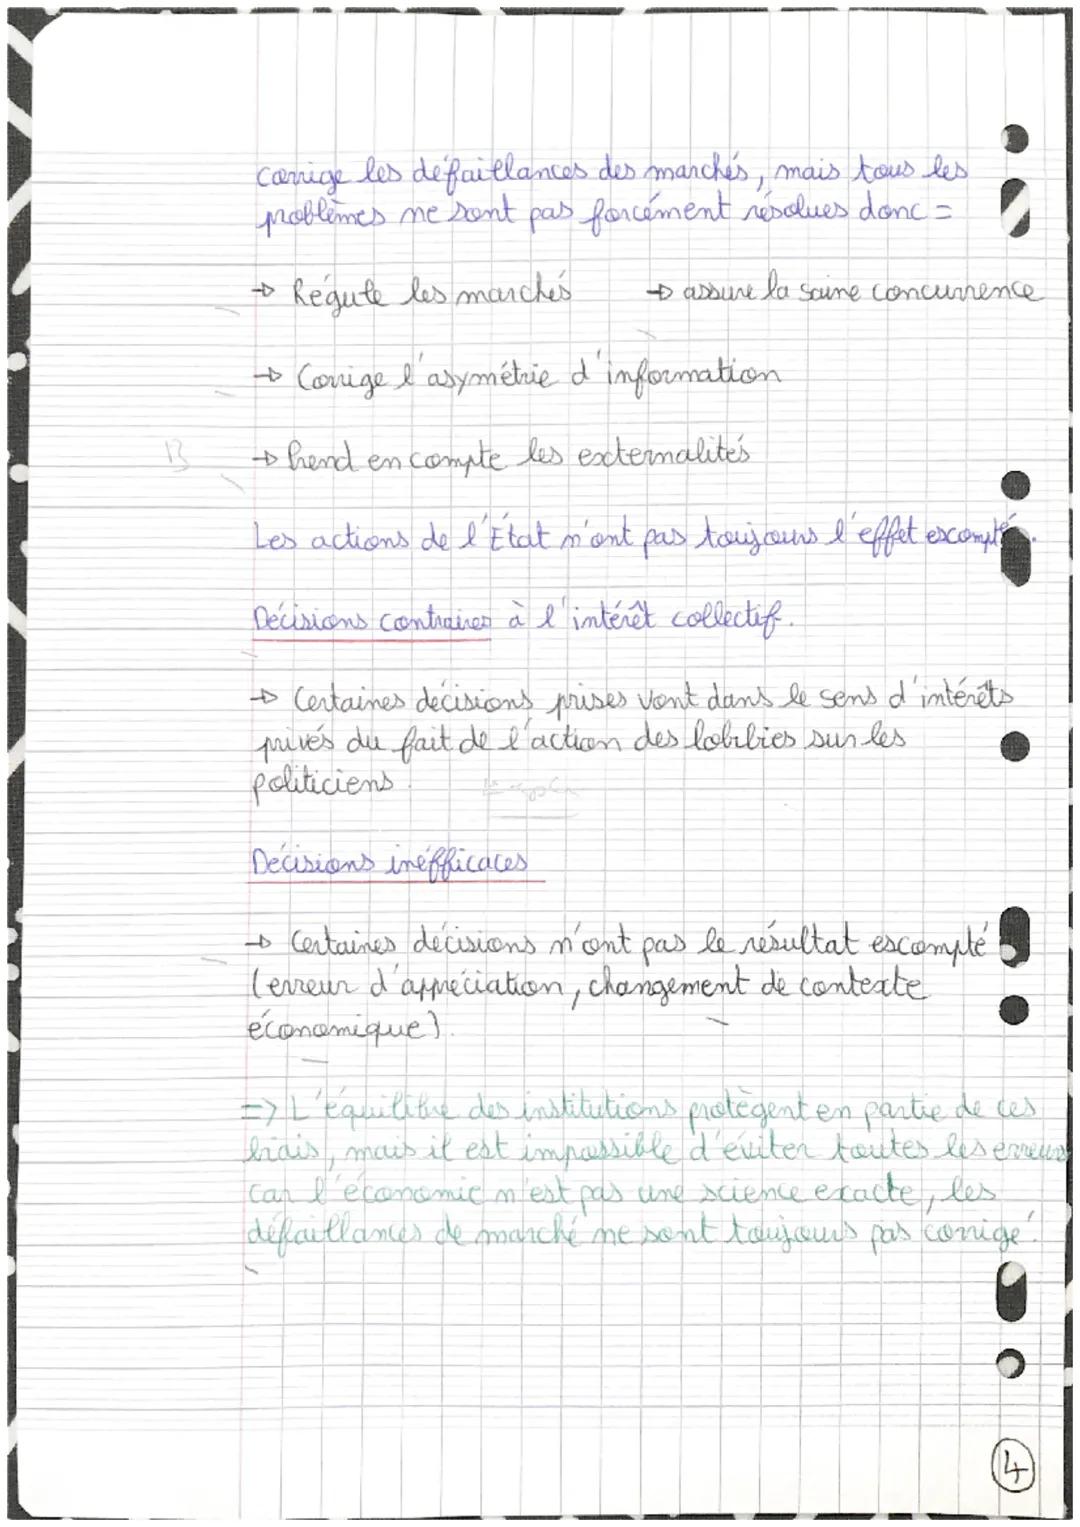 corrige les défaillances des marchés, mais tous les
problèmes ne sont pas forcément résolues donc =
→ Régule les marchés → assure la saine concurrence
→ Corrige l'asymétrie d'information
→ Prend en compte les externalités
Les actions de l'État n'ont pas toujours l'effet escompté.
Décisions contraires à l'intérêt collectif.
→ Certaines décisions prises vont dans le sens d'intérêts
privés du fait de l'action des lobbies sur les
politiciens.
Décisions inéfficaces
→ Certaines décisions n'ont pas le résultat escompté
(erreur d'appréciation, changement de contexte
économique).
=> L'équilibre des institutions protègent en partie de ces
biais, mais il est impossible d'éviter toutes les erreurs
car l'économie n'est pas une science exacte, les
défaillances de marché ne sont toujours pas corrigé.
4